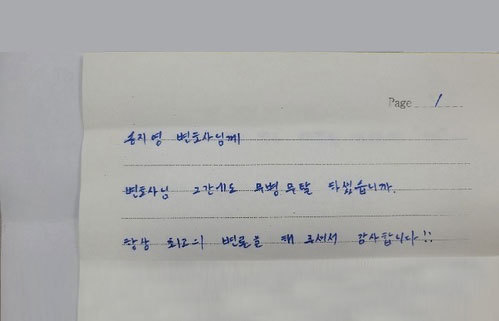 Page 1
손지영 변호사님께
변호사님 그간에도 무병무탈 하셨습니까.
항상 최고의 변론을 해 주셔서 감사합니다!!